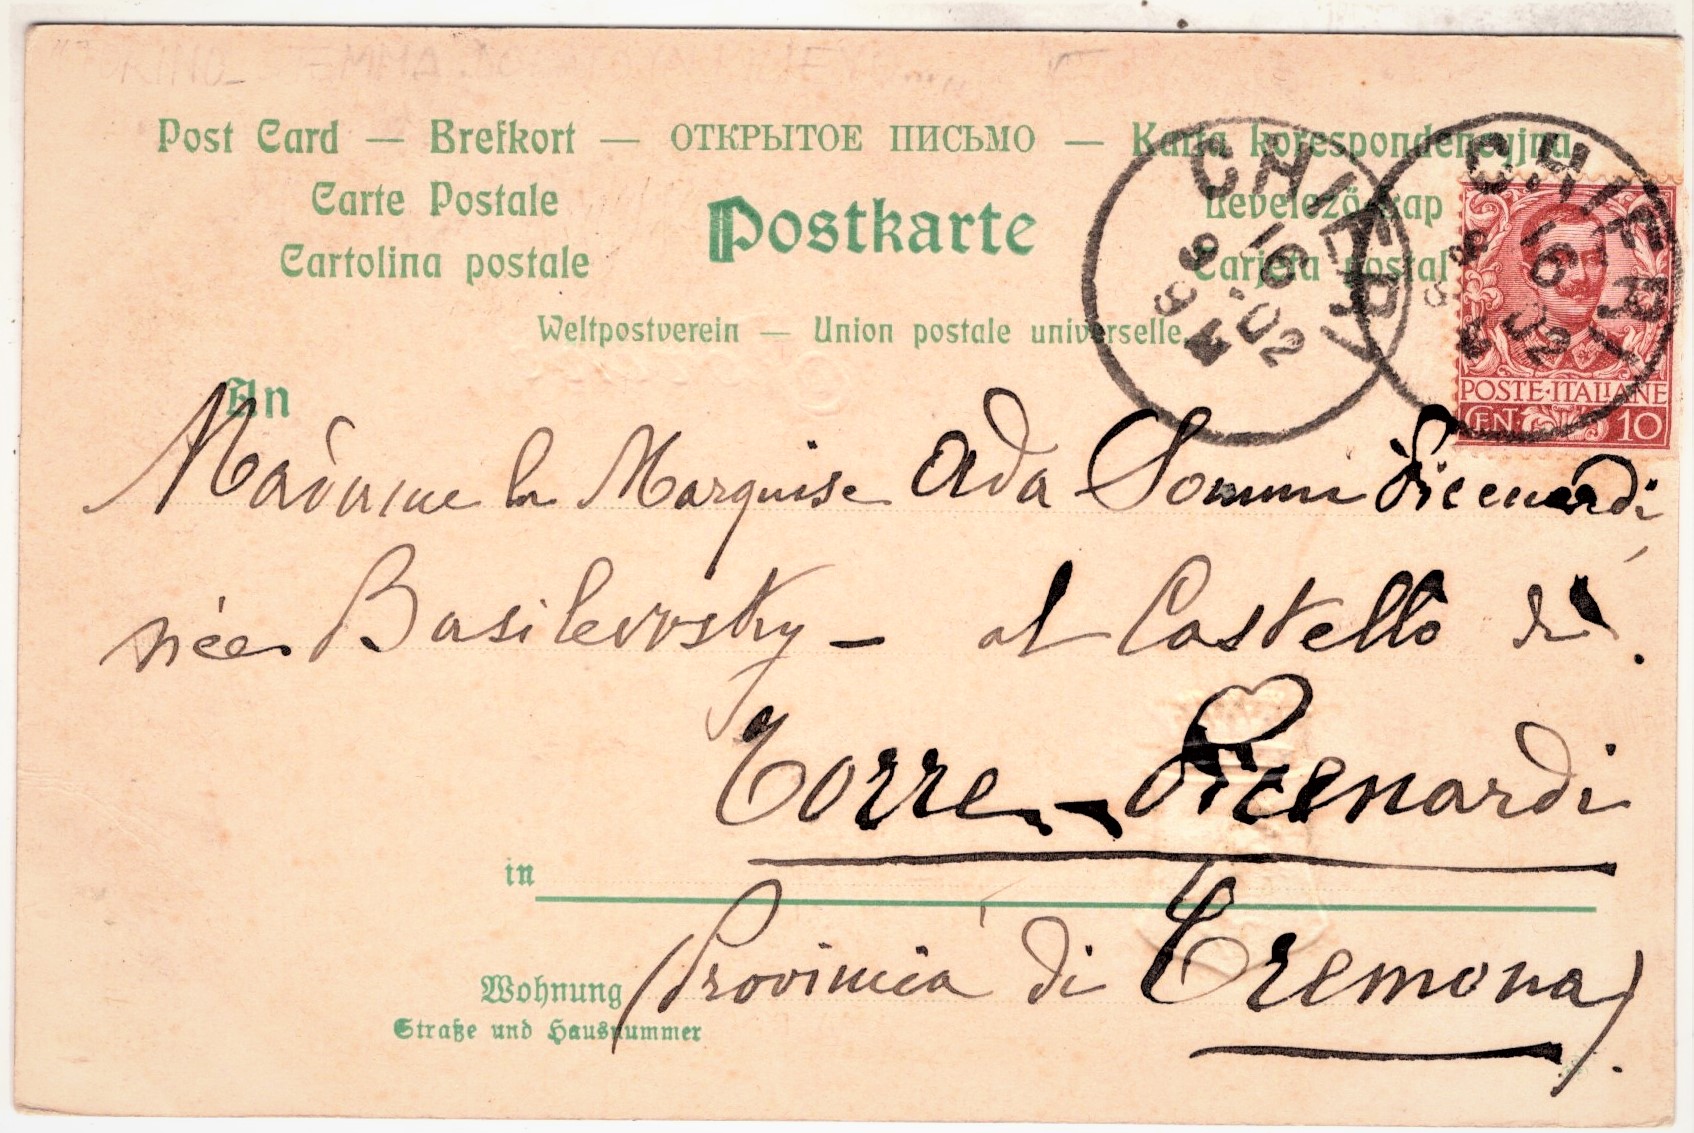 Post Card — Brefkort — ОТКРЫТОЕ ПИСЬМО — Karta korespondencyjna
Carte Postale
Levelező-Lap
Cartolina postale
Postkarte
Carjeta postal
Weltpostverein — Union postale universelle.
CHIERI
16
9 02
8 M
CHIERI
16
02
8 M
POSTE·ITALIANE
CENT 10
An
Madame la Marquise Ada Sommi Picenardi
née Basilewsky - al Castello di
Torre-Picenardi
in
(Provincia di Cremona)
Wohnung
Straße und Hausnummer